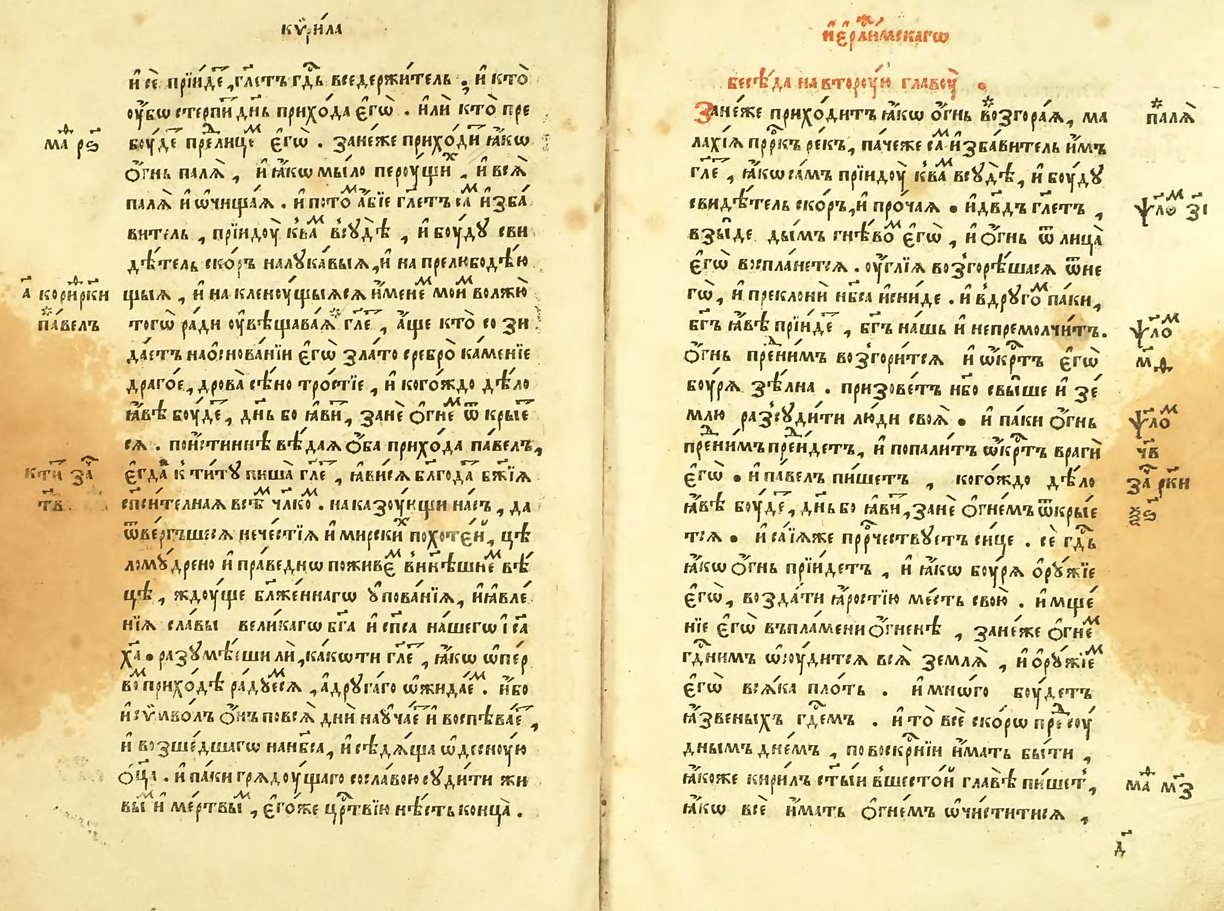 кѷ́рила
и҆ сѐ прїи́де҇, гл҃етъ гд҇ь вседержи́тель, и҆ кто̀
ѹ҆́бѡ стерпи҇ дн҃ь прихо́да є҆гѡ̀ . и҆лѝ кто̀ пре
маⷴ҇ рѕ҃
бѹ́де҇ преⷣлице є҆гѡ̀ . зане́же прихо́ди҇ ꙗ҆́кѡ
ѻ҆́гнь палѧ̀ , и҆ ꙗ҆́кѡ мы́ло перѹ́щиⷯ , и҆ всѧ̀
палѧ̀ и҆ ѡ҆чища́ѧ . и҆ потоⷨ а҆́бїе гл҃етъ сѧ҇ и҆зба
витель , прїидѹ̀ к ваⷨ всꙋдѣ̀ , и҆ бѹ́дꙋ сви
дѣ́тель ско́ръ налꙋка́выѧ, и҆ на прелюбодѣ́ю
а҃ кори҇ рки
щыѧ , и҆ на кленѹ́щыѧсѧ и҆́менеⷨ моиⷨ во лжю̀
па́велъ
тогѡ̀ ра́ди ѹ҆вѣщава́ѧ гл҃е , а҆́ще кто̀ со зи
да́етъ на ѻ҆снова́нїи є҆гѡ̀ зла́то сребро̀ ка́менїе
драго́е, дрова̀ сѣ́но тро́стїе , и҆ когѡ́ждо дѣ́ло
ꙗ҆́вѣ бѹ́де҇, дн҃ь бо ꙗ҆ви҇, занѐ ѻ҆гнеⷨ ѿкры́е
сѧ . пои́стиннѣ вѣ́даѧ ѻ҆́ба прихо́да па́велъ,
к ти҇ за҃
є҆гда̀ к ти́тꙋ писа̀ гл҃е , ꙗ҆ви́сѧ бл҃года҇ бж҃їѧ
тв҃
сп҃си́тельнаѧ всѣⷨ чл҃коⷨ . наказѹ́ющи на́съ , да
ѿве́ргъшесѧ нече́стїѧ и҆ мирскиⷯ похоте́й , цѣ
ломꙋ́дрено и҆ пра́веднѡ поживеⷨ в ни́нѣшнеⷨ вѣ
цѣ , ждѹ́ще бл҃же́ннагѡ ᲂупова́нїѧ , и҆ ꙗ҆вле́
нїѧ сла́вы вели́кагѡ бг҃а и҆ сп҃са на́шегѡ і҆са
хⷭ҇а . разꙋмѣ́еши ли , ка́кѡ ти гл҃е , ꙗ҆́кѡ ѡ҆ пе́р
воⷨ прихо́дѣ ра́дꙋесѧ , а҆ дрꙋга́гѡ ѡ҆жида́еⷨ . и҆́бо
и҆ сѷ́мво́лъ ѻ҆́нъ повсѧ̀ дни̑ наꙋча́е҇ и҆ воспѣва́е҇ ,
и҆ возше́дшагѡ на нб҃са , и҆ сѣдѧ́ща ѡ҆деснѹ́ю
ѻ҆ц҃а . и҆ па́ки грѧдѹ́щаго со сла́вою сꙋди́ти жи
вы́мⷨ и҆ ме́ртвыⷨ , є҆гѡ́же црⷭ҇твїю нѣ́сть конца̀ .
и҆єрⷭ҇ли́мскагѡ
бесѣ́да на вторѹ́ю главѹ̀ .
Зане́же прихо́дитъ ꙗ҆́кѡ ѻ҆́гнь возгора́ѧ, ма
палѧ̀
лахі́ѧ прⷪ҇ркъ ре́къ, па́чеже саⷨ и҆зба́витель и҆́мъ
гл҃е , ꙗ҆́кѡ са́мъ прїидѹ̀ к ваⷨ всꙋ́дѣ , и҆ бѹ́дꙋ
свидѣ́тель ско́ръ, и҆ про́чаѧ . и҆ дв҃дъ гл҃етъ ,
ѱлоⷨ зі҃
взы́де ды́мъ гнѣ́воⷨ є҆гѡ̀ , и҆ ѻ҆́гнь ѿ лица̀
є҆гѡ̀ воспла́нетсѧ . ѹ҆́глїѧ возгорѣ́шасѧ ѿ не
гѡ̀ , и҆ преклонѝ нб҃са и҆ сни́де . и҆ в дрꙋго́ⷨ па́ки ,
бг҃ъ ꙗ҆́вѣ прїи́де҇ , бг҃ъ на́шь и҆ не премолчи́тъ .
ѱлоⷨ
ѻ҆́гнь преⷣ ни́мъ возгори́тсѧ и҆ ѡ҆́крⷭ҇тъ є҆гѡ̀
м҃ѳ
бѹ́рѧ зѣ́лна . призове́тъ нб҃о свы́ше и҆ зе́
млю разсꙋди́ти лю́ди своѧ̀ . и҆ па́ки ѻ҆́гнь
ѱлоⷨ
преⷣ ни́мъ пре́йдетъ , и҆ попали́тъ ѡ҆́крⷭ҇тъ врагѝ
ч҃ѕ
є҆гѡ̀ . и҆ па́велъ пи́шетъ , когѡ́ждо дѣ́ло
за҃ рки
ꙗ҆́вѣ бѹ́де҇ , дн҃ь бо ꙗ҆ви҇ , занѐ ѻ҆гне́мъ ѿкры́е
тсѧ . и҆ са і҆́ѧже прⷪ҇ро́чествꙋетъ си́це . сѐ гд҇ь
ꙗ҆́кѡ ѻ҆́гнь прїи́детъ , и҆ ꙗ҆́кѡ бѹ́рѧ ѻ҆рꙋ́жїе
є҆гѡ̀ , возда́ти ꙗ҆́ростїю ме́сть свою̀ . и҆ мще́
нїе є҆гѡ̀ въ пла́мени ѻ҆́гненѣ , зане́же ѻ҆гнеⷨ
гдⷭ҇нимъ ѡ҆сꙋ́дитсѧ всѧ̀ землѧ̀ , и҆ ѻ҆рꙋ́жїеⷨ
є҆гѡ̀ всѧ́ка пло́ть . и҆ мно́гѡ бѹ́детъ
ꙗ҆́звеныхъ гдⷭ҇емъ . и҆ то̀ всѐ ско́рѡ преⷣ сѹ́
днымъ дне́мъ , по воскрⷭ҇нїи и҆́мать бы́ти ,
ꙗ҆́коже кири́лъ ст҃ы́и в шесто́й главѣ̀ пи́шетъ ,
маⷴ҇ мз҃
ꙗ҆́кѡ всѐ и҆́мать ѻ҆гне́мъ ѡ҆чи́ститисѧ ,
д҃